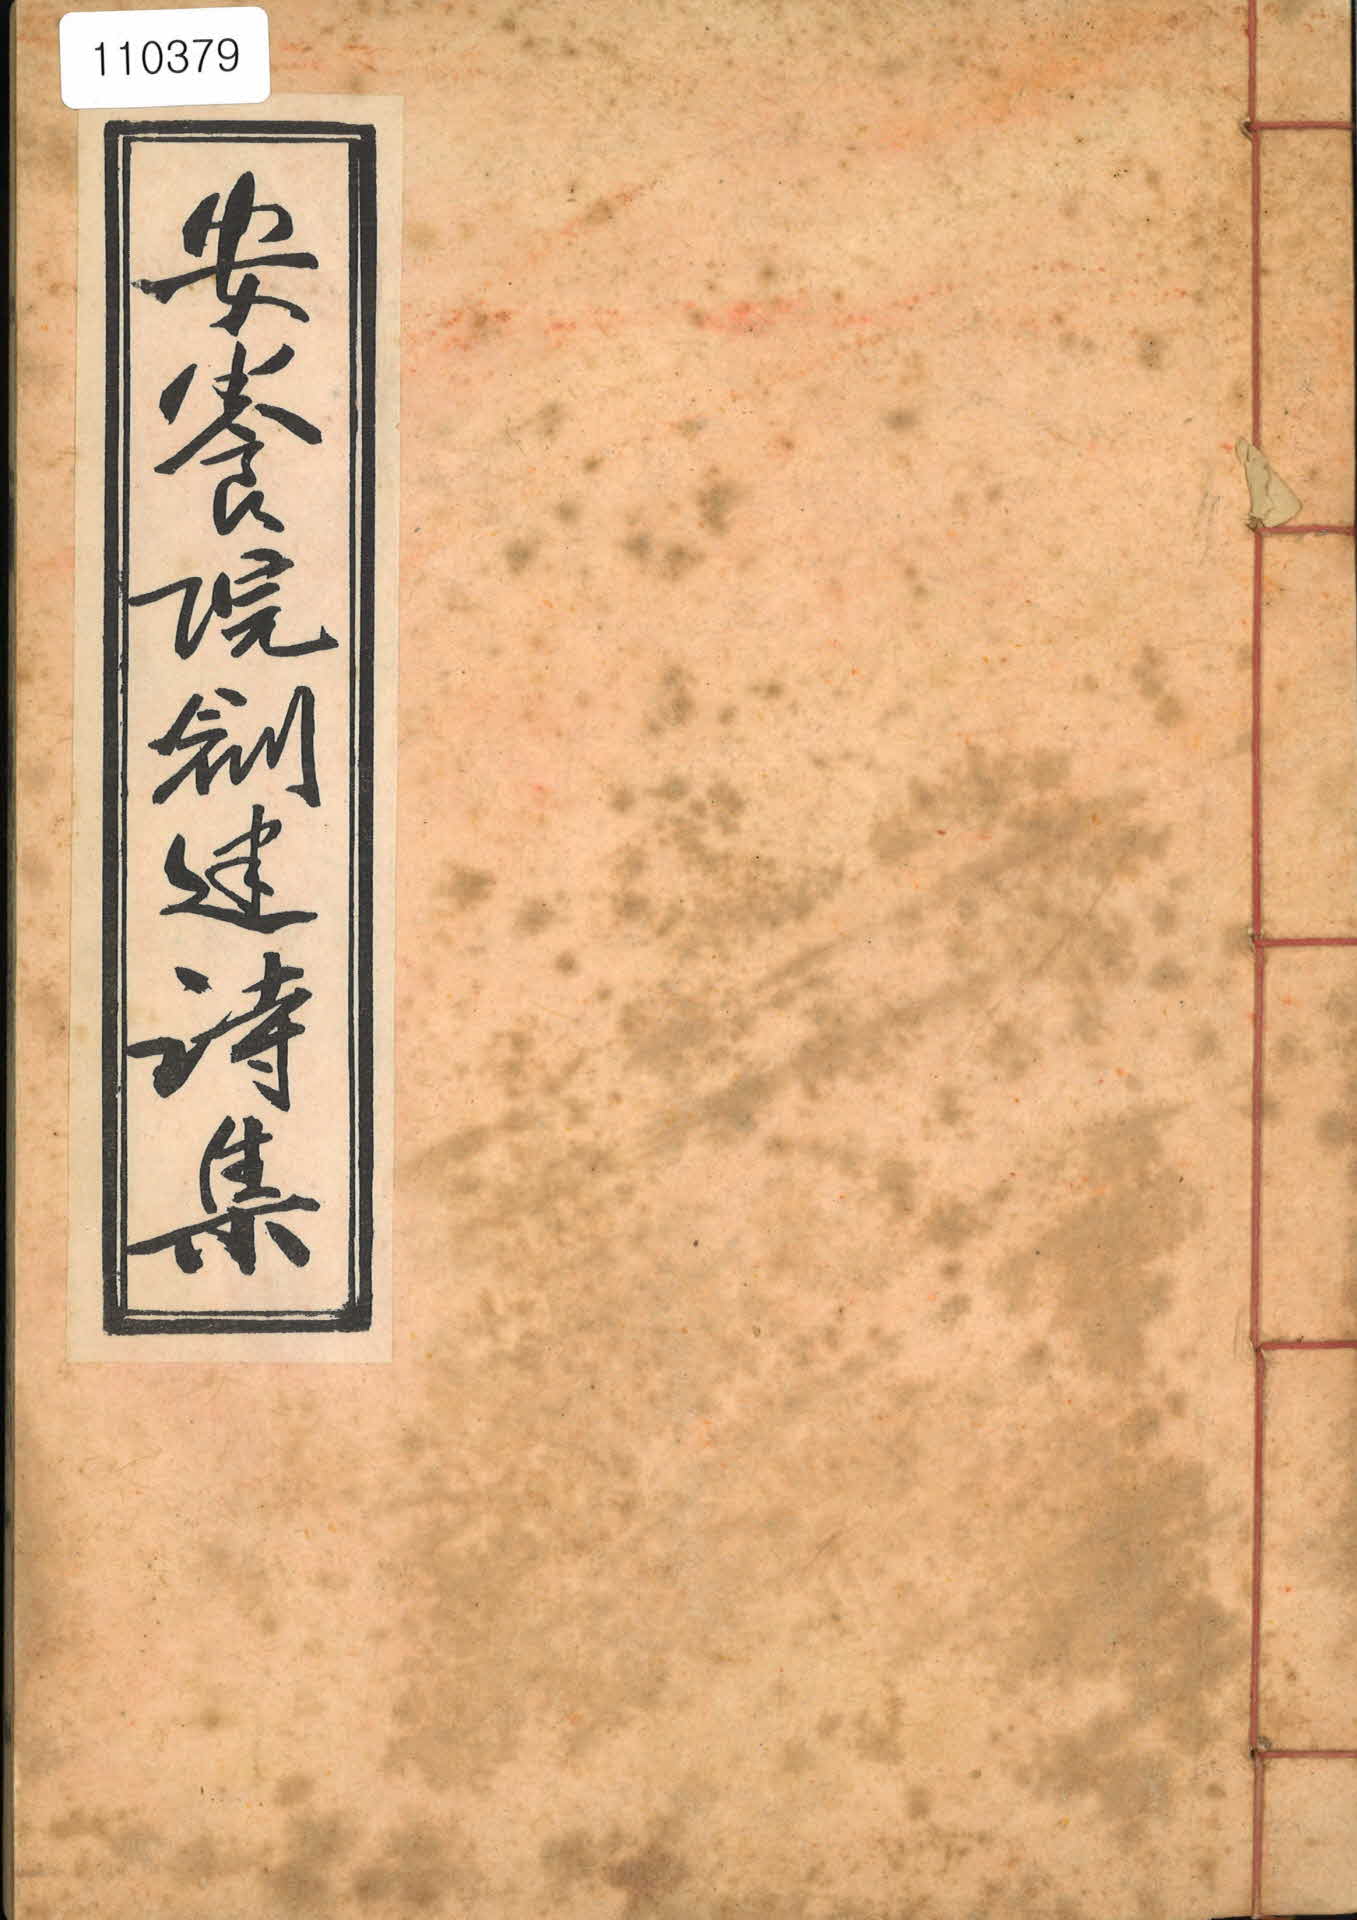 110379
安養院創建詩集